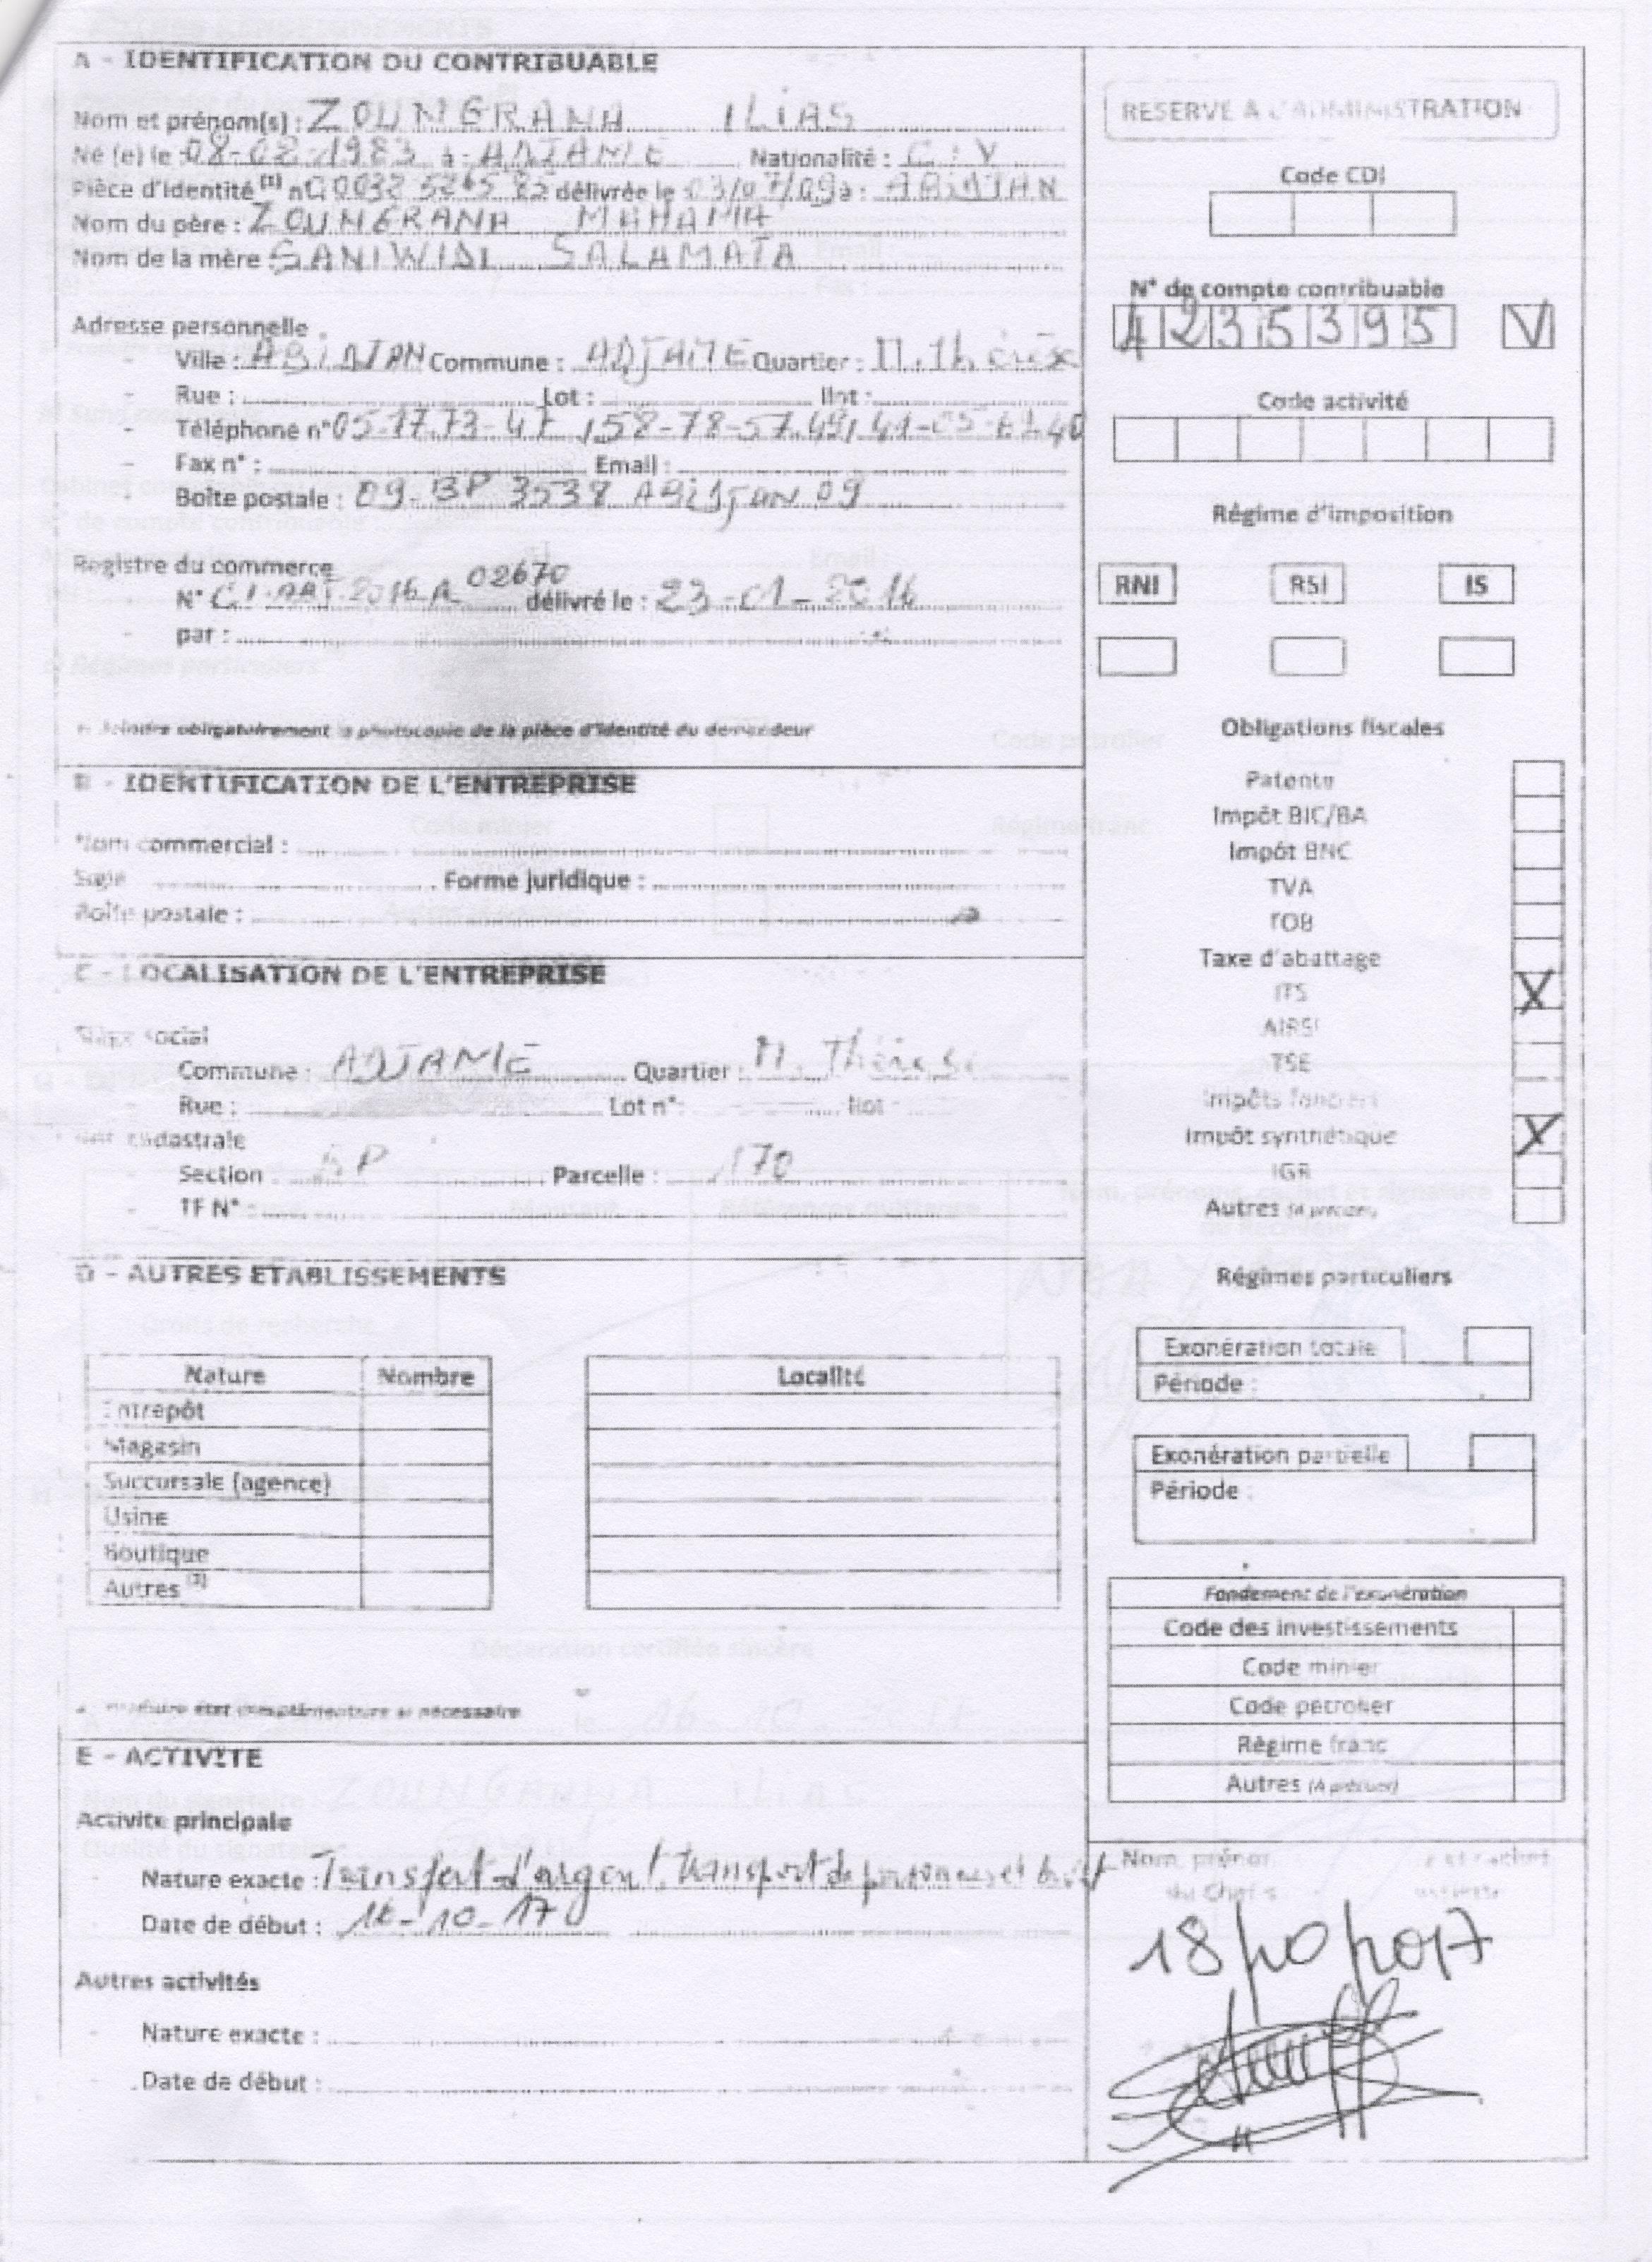 A - IDENTIFICATION DU CONTRIBUABLE
Nom et prénom(s) : ZOUNGRANA ILIAS
Né (e) le : 08-02-1983 à : ADJAMÉ Nationalité : C.I.V
Pièce d'identité (1) n° délivrée le 03/07/09 à : ABIDJAN
Nom du père : ZOUNGRANA MAHAMA
Nom de la mère : SANIWIDI SALAMATA
Adresse personnelle
- Ville : ABIDJAN Commune : ADJAME Quartier : M. Thérèse
- Rue : Lot : Ilot :
- Téléphone n° 05-17-73-47 , 58-78-57-49,
- Fax n° : Email :
- Boîte postale : 09 BP 3538 Abidjan 09
Registre du commerce
- N° CI.ABJ.2016.A 02670 délivré le : 23-01-2016
- par :
1- Joindre obligatoirement la photocopie de la pièce d'identité du demandeur
B - IDENTIFICATION DE L'ENTREPRISE
Nom commercial :
Sigle Forme juridique :
Boîte postale :
C - LOCALISATION DE L'ENTREPRISE
Siège social
- Commune : ADJAMÉ Quartier : M. Thérèse
- Rue : Lot n°: Ilot
Réf. cadastrale
- Section P Parcelle : 170
- TF N° :
D - AUTRES ETABLISSEMENTS
Nature Nombre Localité
Entrepôt
Magasin
Succursale (agence)
Usine
Boutique
Autres (2)
état complémentaire si nécessaire
E - ACTIVITE
Activité principale
- Nature exacte : Transfert d'argent, transport de personnes et
- Date de début : 16-10-17
Autres activités
- Nature exacte :
- Date de début :
RESERVE A L'ADMINISTRATION
Code CDI
N° de compte contribuable
4235395 V
Code activité
Régime d'imposition
RNI RSI IS
Obligations fiscales
Patente
Impôt BIC/BA
Impôt BNC
TVA
TOB
Taxe d'abattage
ITS X
AIRSI
TSE
Impôts fonciers
Impôt synthétique X
IGR
Autres (A préciser)
Régimes particuliers
Exonération totale
Période :
Exonération partielle
Période :
Fondement de l'exonération
Code des investissements
Code minier
Code pétrolier
Régime franc
Autres (A préciser)
Nom, prénom et cachet
du Chef
18/10/2017